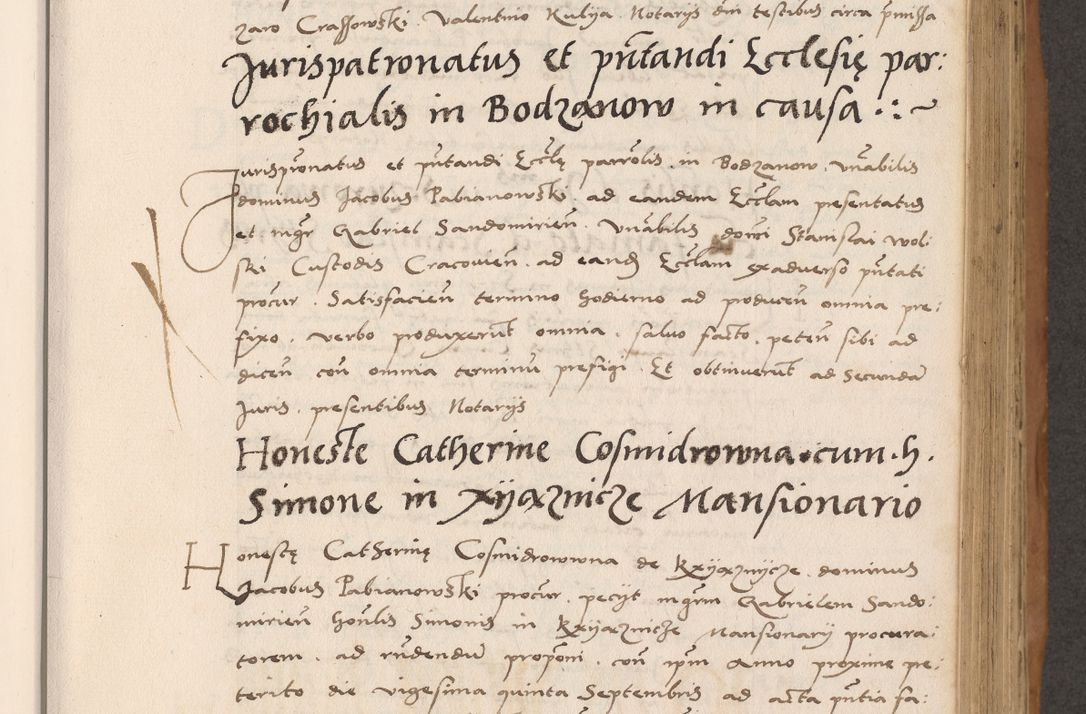 zaro Crassowski. Valentino Kulya. Notarijs d͞m testibus circa p͞missa
Jurispatronatus et pn͞tandi Ecclesię par:
rochialis in Bodzanow in causa
Jurisp͞ronatus et pn͞tandi Eccl͞ę parro͞lis in Bodzanow. Vn͞abilis
dominus Jacobus Pabianowski. ad eandem Eccl͞am presentatus
et mgr͞ Gabriel Sandomirien͞. Vn͞abilis do͞mi Stanislai Wol:
ski Custodis Cracovien͞. ad eand͞ Eccl͞am exadverso pn͞tati
procur͞. Satisfacien͞ termino hodierno ad producen͞ omnia pre:
fixo. verbo produxerun͞t omnia. salvo fac͞to. peten͞ sibi ad
dicen͞ con͞ omnia terminu͞ prefigi. Et obtinuerun͞t ad Secunda͞
Juris. presentibus Notarijs
Honeste Catherine Cosmidrowna cum h.
Simone in Xijaznicze Mansionario
Honestę Catherinę Cosmidrowwna de Kxyaznijcze. dominus
Jacobus Pabianowski procur͞. pecijt mgr͞m Gabrielem Sando:
mirien͞ hon͞lis Simonis in Kxijaznicze Mansionarij procura:
torem. ad ru͞dendu͞ propo͞ni. con͞ ip͞m Anno proxime pre:
terito die vigesima quinta Septembris ad acta pn͞tia fa: